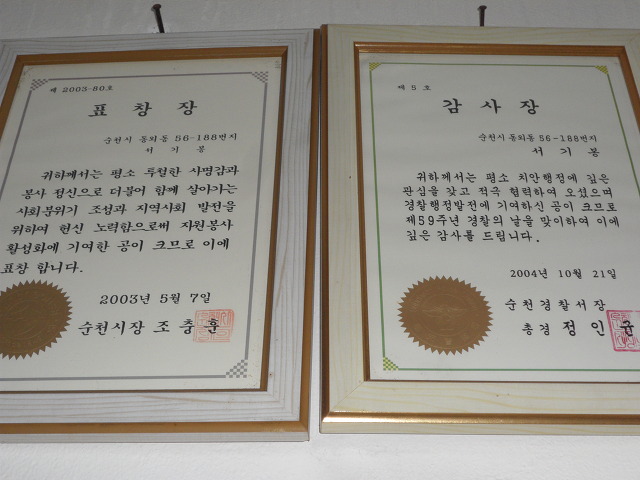 제 2003-80호
표 창 장
순천시 동외동 56-188번지
서 기 봉
귀하께서는 평소 투철한 사명감과
봉사 정신으로 더불어 함께 살아가는
사회분위기 조성과 지역사회 발전을
위하여 헌신 노력함으로써 자원봉사
활성화에 기여한 공이 크므로 이에
표창 합니다.
2003년 5월 7일
순천시장 조 충 훈
제 5 호
감 사 장
순천시 동외동 56-188번지
서 기 봉
귀하께서는 평소 치안행정에 깊은
관심을 갖고 적극 협력하여 오셨으며
경찰행정발전에 기여하신 공이 크므로
제59주년 경찰의 날을 맞이하여 이에
깊은 감사를 드립니다.
2004년 10월 21일
순천경찰서장
총경 정 인 균